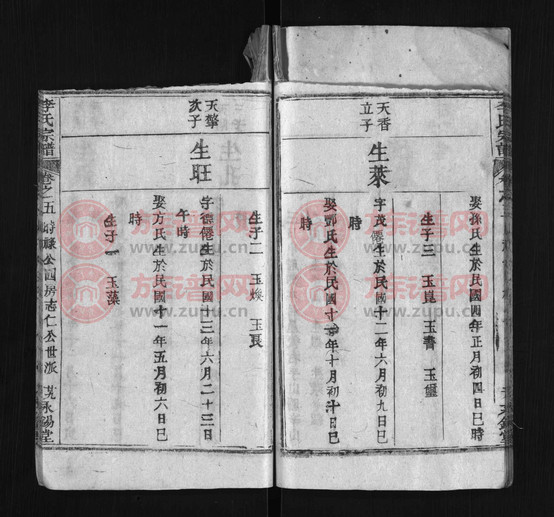 李氏宗譜
娶孫氏生於民國四年正月初四日巳時
生子三 玉崑 玉書 玉璽
天香
立子
生萊
字茂僊生於民國十二年六月初九日巳
時
娶鄧氏生於民國十年十月初十日巳
時
生子二 玉煥 玉良
天擎
次子
生旺
字德僊生於民國十三年六月二十三日
午時
娶方氏生於民國十一年五月初六日巳
時
生子一 玉藻
李氏宗譜
卷之五
公四房志仁公世派
永錫堂
族谱网
www.zupu.cn
族谱网
www.zupu.cn
族谱网
www.zupu.cn
族谱网
www.zupu.cn